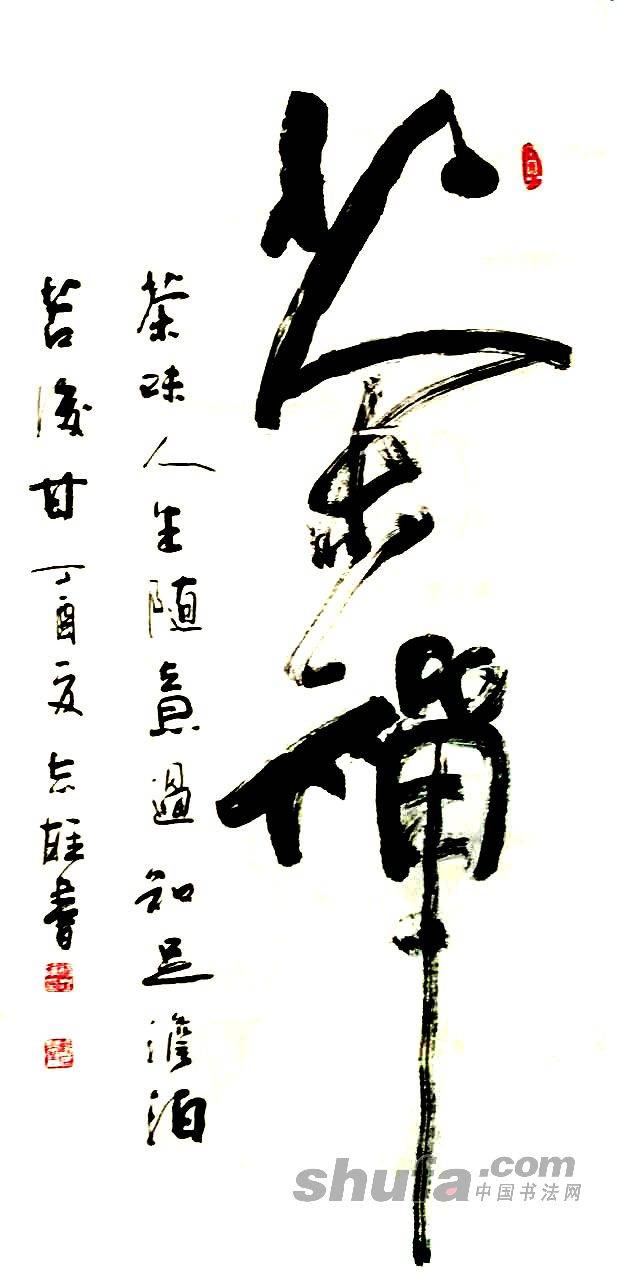 茶禅
茶味人生随意過知足澹泊
苦後甘丁酉夏志雄書
shufa.com
中国书法网